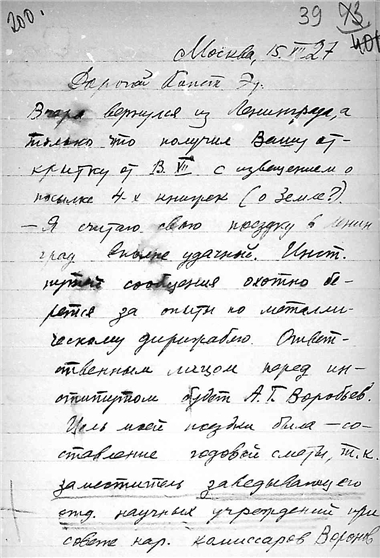 200.
39 73
401
Москва, 15. VII 27
Дорогой Конст. Эд.
Вчера вернулся из Ленинграда, а
только что получил Вашу от-
критку от 13. VII с извещением о
посылке 4-х книжек (о Земле?).
— Я считаю свою поездку в Ленин
град вполне удачной. Инст.
путей сообщения охотно бе-
рется за опыты по металли-
ческому дирижаблю. Ответ-
ственным лицом перед ин-
ститутом будет А. Г. Воробьев.
Цель моей поездки была — со-
ставление годовой сметы, т. к.
заместитель заведывающего
отд. научных учреждений при
совете нар. комиссаров Воронов